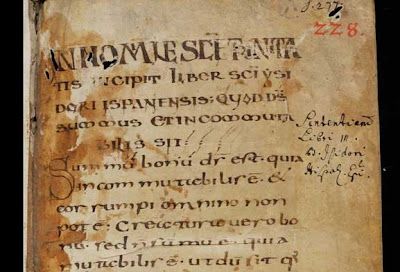 f. 277.
228.
IN NOMIE SCE TRINITA
TIS INCIPIT LIBER SCI YSI
DORI ISPANENSIS; QUOD DS
SUMMUS ET INCOMMUTA
BILIS SIT
Summu bonu ds est. quia
incommutabilis e. &
corrumpi omnino non
pote: Creatura uero bo
na, sed n summu e. quia
mutabilis e.
Sententiarum
Libri III
D. Isidori
Hispal. Epi.